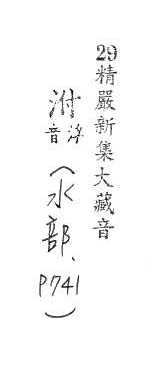 29精嚴新集大藏音
音浮(水部、P741)